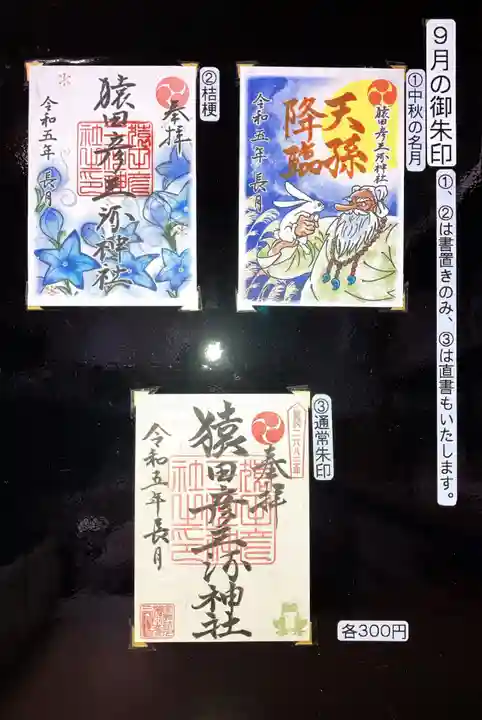 9月の御朱印
①、②は書置きのみ、③は直書もいたします。
①中秋の名月
猿田彦三河神社
天孫
降臨
令和五年 長月
②桔梗
奉拝
猿田彦三河神社
令和五年 長月
③通常朱印
奉拝
猿田彦三河神社
令和五年長月
各300円